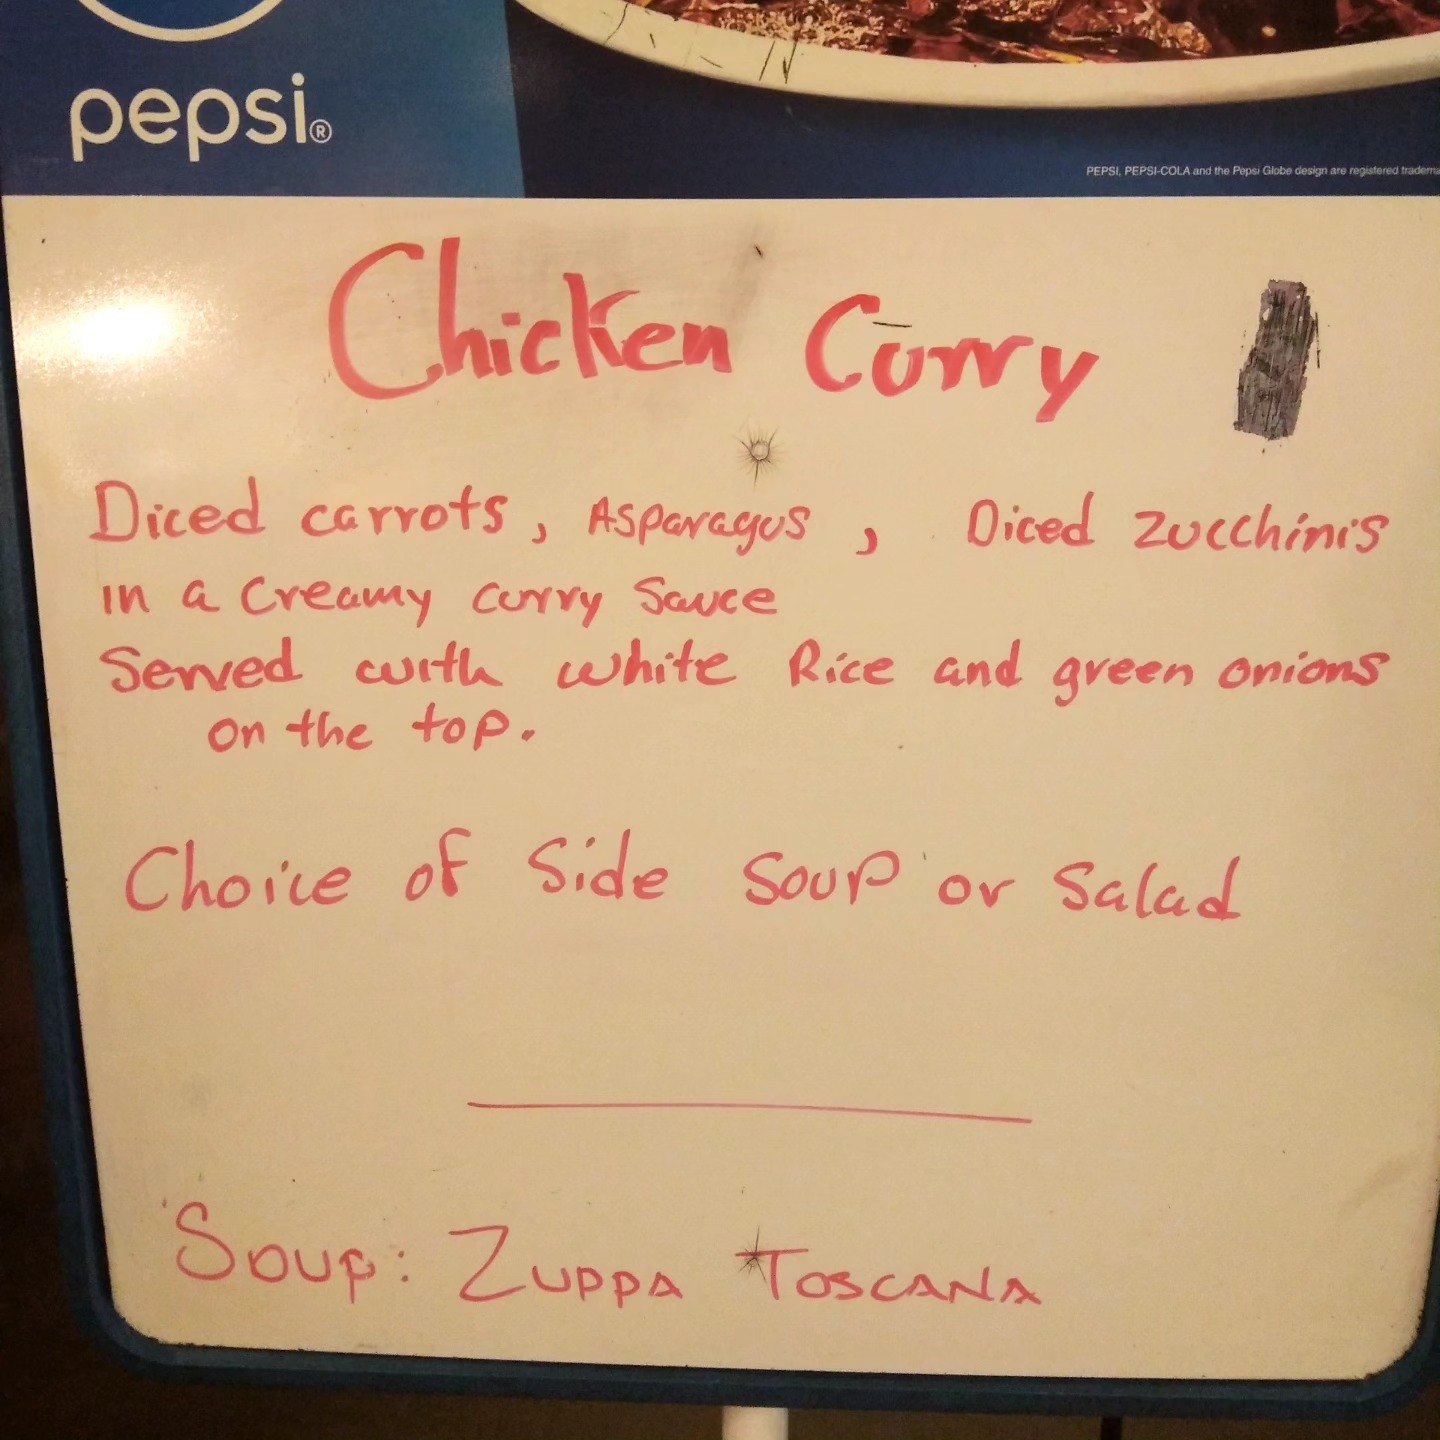 pepsi®
PEPSI, PEPSI-COLA and the Pepsi Globe design are registered
Chicken Curry
Diced carrots, Asparagus, Diced Zucchinis
in a creamy curry Sauce
Served with white Rice and green onions
on the top.
Choice of Side Soup or Salad
Soup: ZUPPA TOSCANA